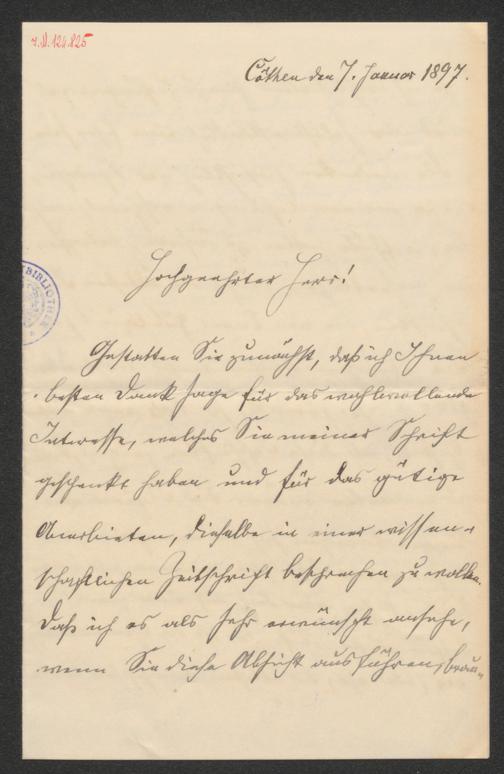 I.N. 124.825
Cöthen den 7. Januar 1897.
BIBLIOTHEK
Hochgeehrter Herr!
Gestatten Sie zunächst, daß ich Ihnen
besten Dank sage für das wohlwollende
Interesse, welches Sie meiner Schrift
geschenkt haben und für das gütige
Anerbieten, dieselbe in einer wissen-
schaftlichen Zeitschrift besprechen zu wollen.
Daß ich es als sehr erwünscht ansehe,
wenn Sie diese Absicht ausführen, brau-